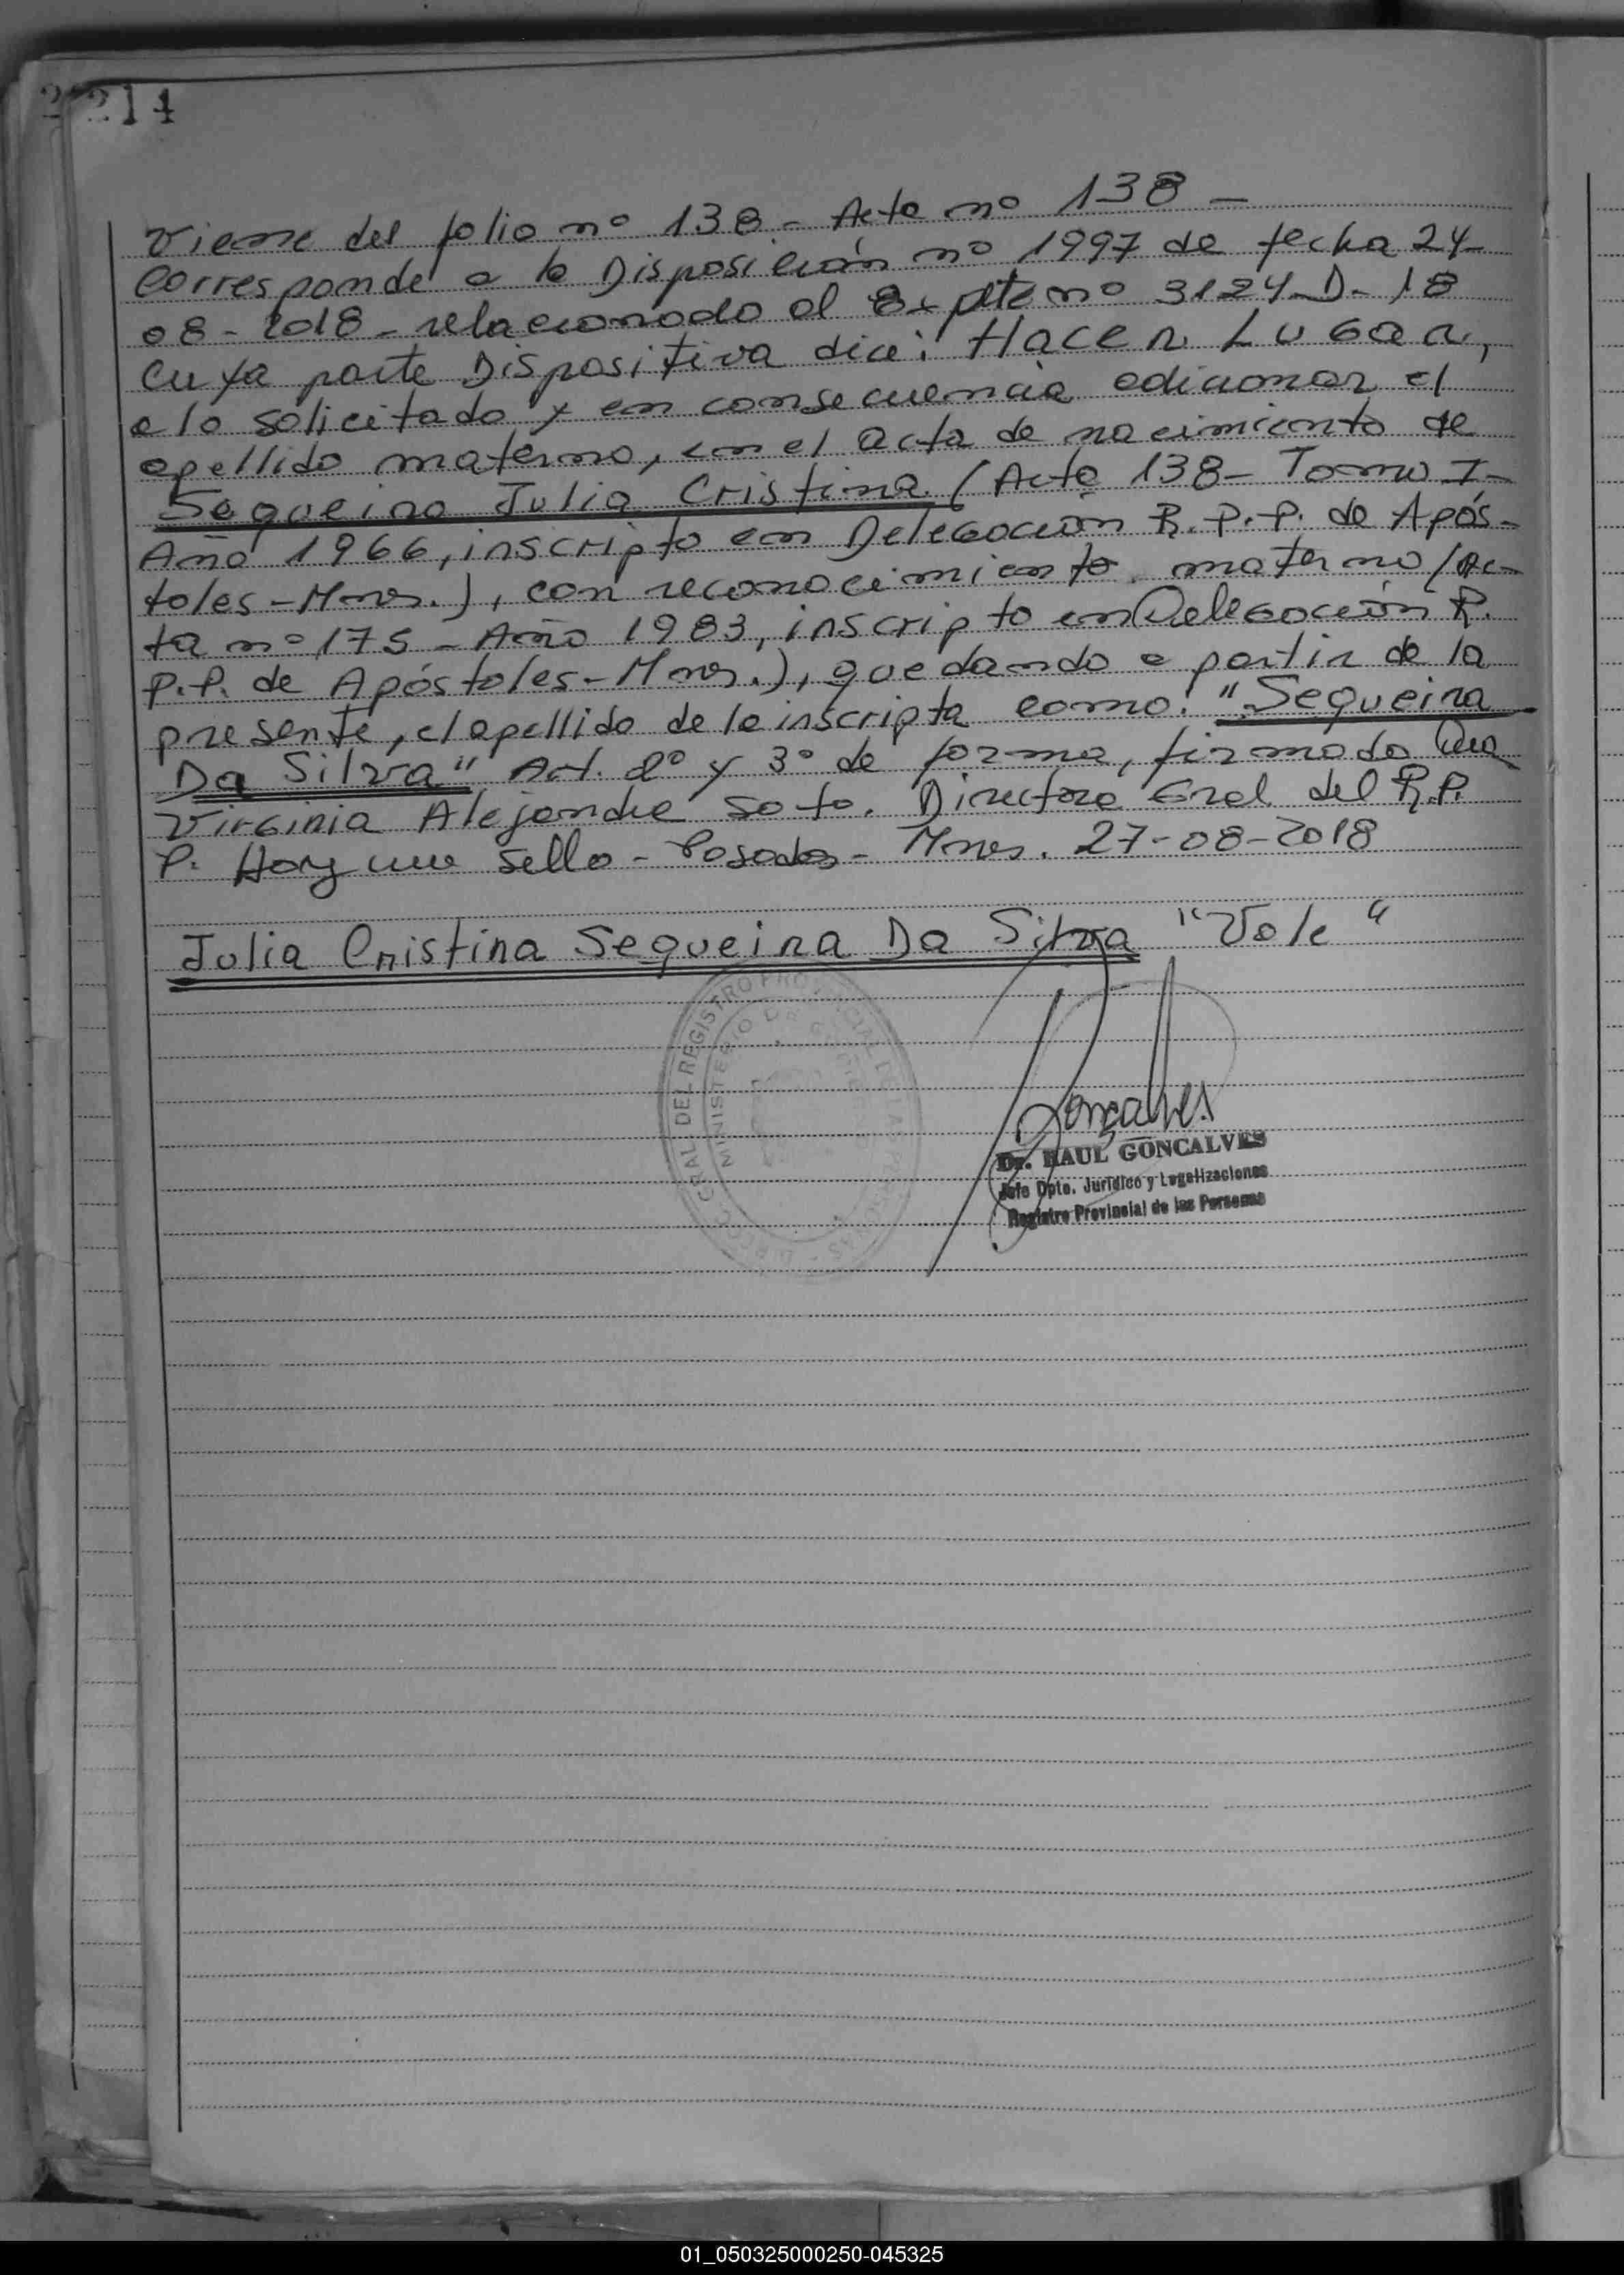 214
Viene del folio nº 138 - Acta nº 138 -
Corresponde a la Disposición nº 1997 de fecha 24-
08-2018- relacionado al Expte nº 3124-D-18
cuya parte Dispositiva dice: Hacer Lugar,
a lo solicitado y en consecuencia adicionar el
apellido materno, en el acta de nacimiento de
Sequeira Julia Cristina (Acta 138- Tomo I-
Año 1966, inscripto en Delegación R.P.P. de Após-
toles-Mnes.), con reconocimiento materno (Ac-
ta nº 175 - Año 1983, inscripto en Delegación R.
P.P. de Apóstoles-Mnes.), quedando a partir de la
presente, el apellido de la inscripta como: "Sequeira
Da Silva" Art. 2º y 3º de forma, firmado
Virginia Alejandra Soto. Directora Gral del R.P.
P. Hay un sello - Posadas - Mnes. 27-08-2018
Julia Cristina Sequeira Da Silva "Vale"
GRAL DEL REGISTRO PROVINCIAL DE LAS PERSONAS
MINISTERIO DE
Goncalves
Dr. RAUL GONCALVES
Jefe Dpto. Jurídico y Legalizaciones
Registro Provincial de las Personas
01_050325000250-045325